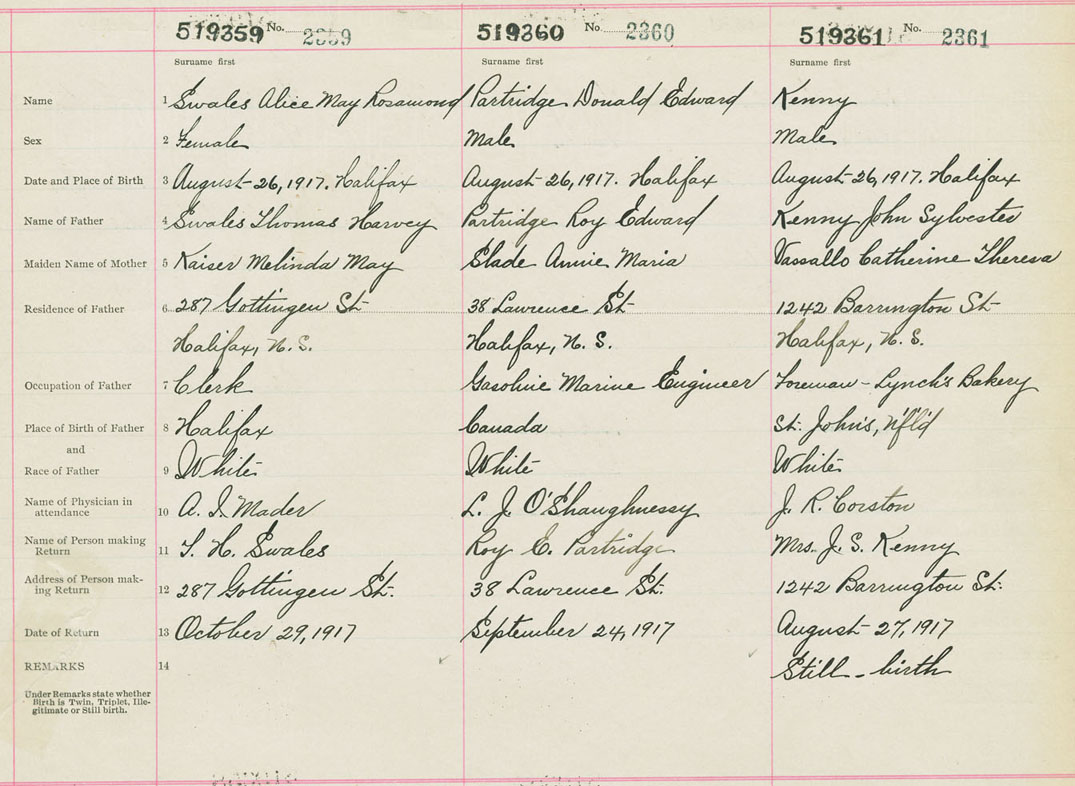 519359 No. 2359 519360 No. 2360 519361 No. 2361
Surname first Surname first Surname first
Name 1 Swales Alice May Rosamond Partridge Donald Edward Kenny
Sex 2 Female Male Male
Date and Place of Birth 3 August 26, 1917. Halifax August 26, 1917. Halifax August 26, 1917. Halifax
Name of Father 4 Swales Thomas Harvey Partridge Roy Edward Kenny John Sylvester
Maiden Name of Mother 5 Kaiser Melinda May Slade Annie Maria Vassallo Catherine Theresa
Residence of Father 6 287 Gottingen St 38 Lawrence St 1242 Barrington St
Halifax, N. S. Halifax, N. S. Halifax, N. S.
Occupation of Father 7 Clerk Gasoline Marine Engineer Foreman - Lynch's Bakery
Place of Birth of Father 8 Halifax Canada St. John's, N'f'l'd
and
Race of Father 9 White White White
Name of Physician in
attendance 10 A. I. Mader L. J. O'Shaughnessy J. R. Corston
Name of Person making
Return 11 T. H. Swales Roy E. Partridge Mrs. J. S. Kenny
Address of Person mak-
ing Return 12 287 Gottingen St. 38 Lawrence St. 1242 Barrington St.
Date of Return 13 October 29, 1917 September 24, 1917 August 27, 1917
REMARKS 14 Still-birth
Under Remarks state whether
Birth is Twin, Triplet, Ille-
gitimate or Still birth.